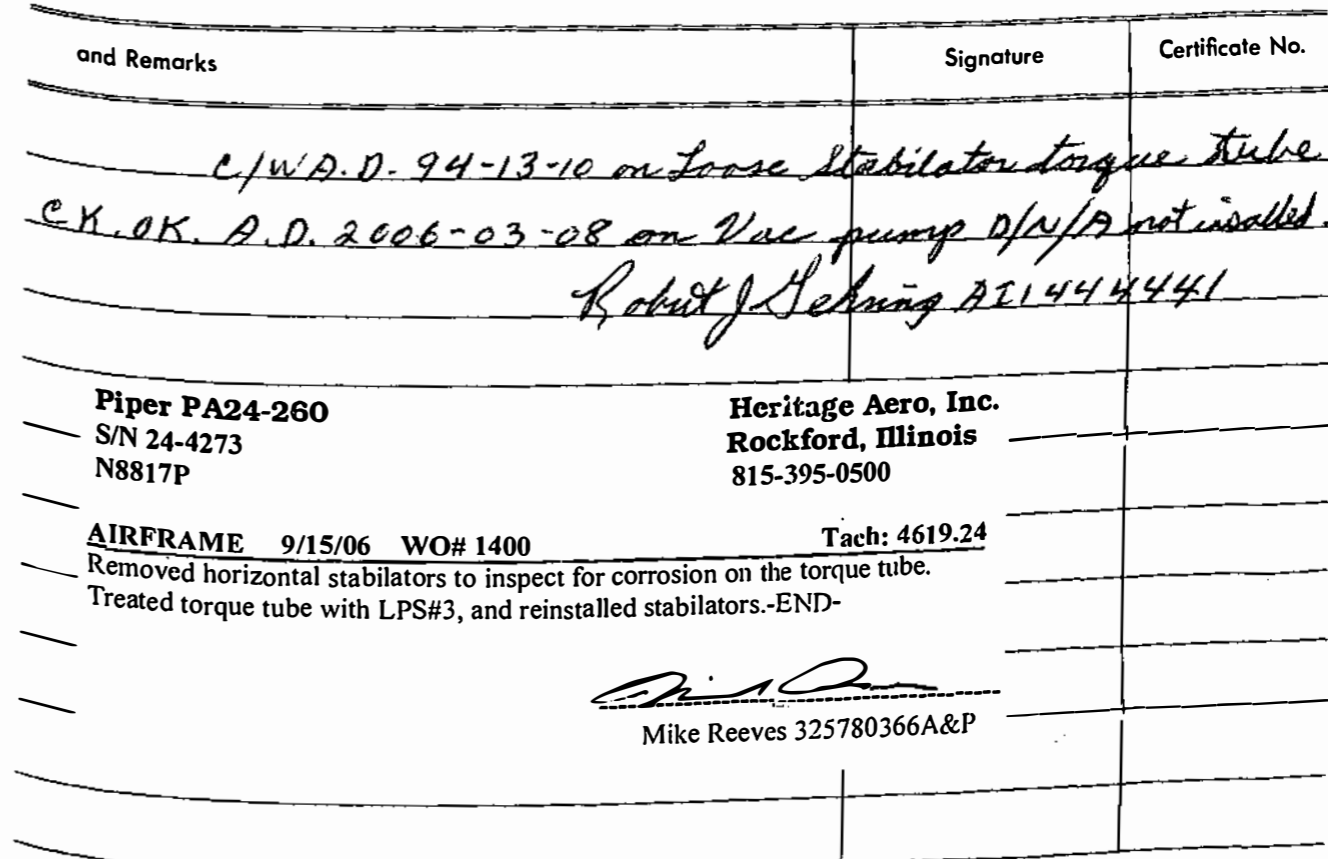 and Remarks Signature Certificate No.
C/W A.D. 94-13-10 on Loose Stabilator torque tube
CK. OK. A.D. 2006-03-08 on Vac pump D/N/A not insalled.
Robert J Gehring AI1444441
Piper PA24-260 Heritage Aero, Inc.
S/N 24-4273 Rockford, Illinois
N8817P 815-395-0500
AIRFRAME 9/15/06 WO# 1400 Tach: 4619.24
Removed horizontal stabilators to inspect for corrosion on the torque tube.
Treated torque tube with LPS#3, and reinstalled stabilators.-END-
Mike Reeves 325780366A&P